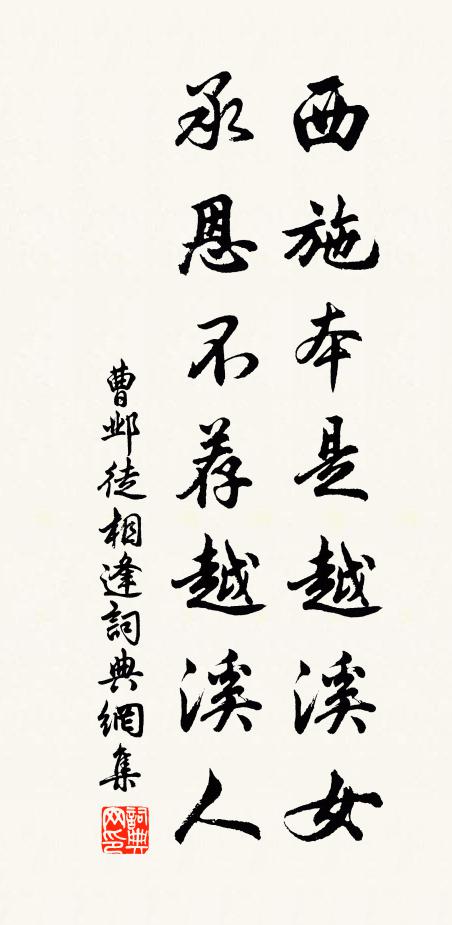 西施本是越溪女
承恩不荐越溪人
曹邺徒相逢詞典網集
詞典
网印